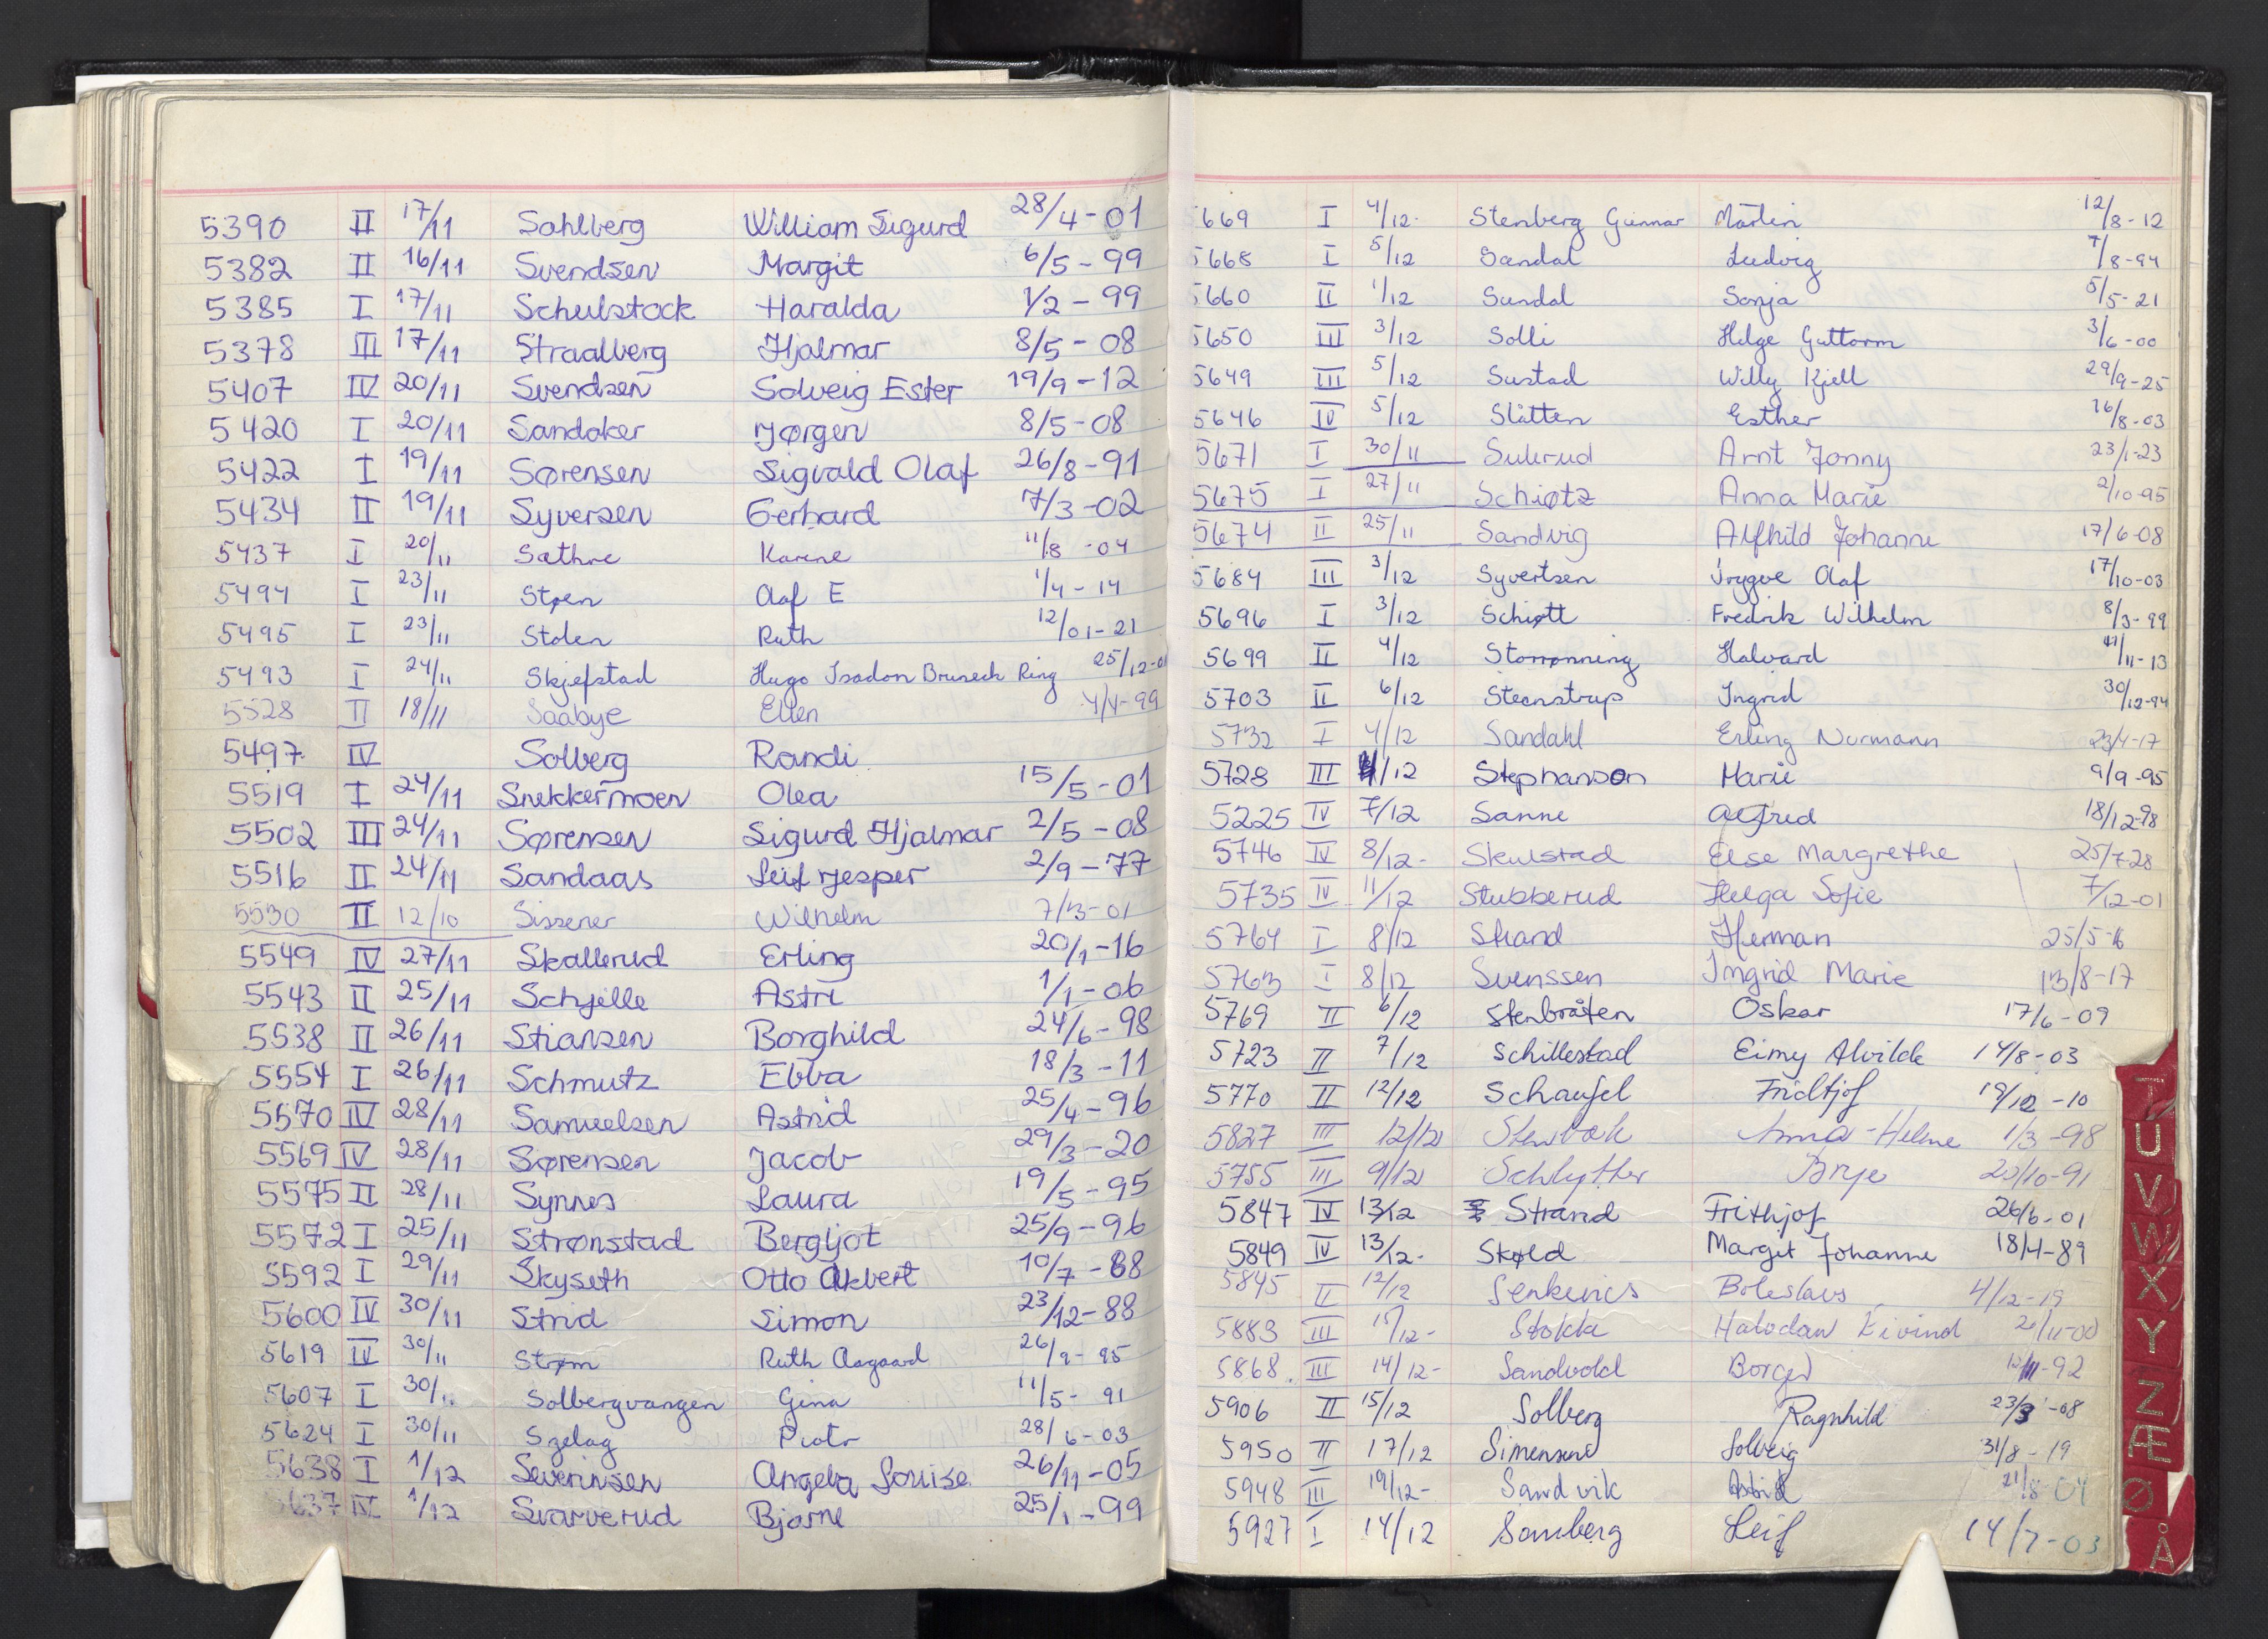 5390 II 17/11 Sahlberg William Sigurd 28/4-01
5382 II 16/11 Svendsen Margit 6/5-99
5385 I 17/11 Schulstock Haralda 1/2-99
5378 III 17/11 Straalberg Hjalmar 8/5-08
5407 IV 20/11 Svendsen Solveig Ester 19/9-12
5420 I 20/11 Sandaker Jørgen 8/5-08
5422 I 19/11 Sørensen Sigvald Olaf 26/8-91
5434 II 19/11 Syversen Gerhard 7/3-02
5437 I 20/11 Sæthre Karine 11/8-04
5494 I 23/11 Støen Olaf E 1/4-14
5495 I 23/11 Stolen Ruth 12/01-21
5493 I 24/11 Skjefstad Hugo Isadon Bruneck Ring 25/12-01
5528 II 18/11 Saabye Ellen 4/4-99
5497 IV Solberg Randi
5519 I 24/11 Snekkermoen Olea 15/5-01
5502 III 24/11 Sørensen Sigurd Hjalmar 2/5-08
5516 II 24/11 Sandaas Leif Jesper 2/9-77
5530 II 12/10 Sissener Wilhelm 7/3-01
5549 IV 27/11 Skallerud Erling 20/1-16
5543 II 25/11 Schjelle Astri 1/1-06
5538 II 26/11 Stiansen Borghild 24/6-98
5554 I 26/11 Schmutz Ebba 18/3-11
5570 IV 28/11 Samuelsen Astrid 25/4-96
5569 IV 28/11 Sørensen Jacob 29/3-20
5575 II 28/11 Synnes Laura 19/5-95
5572 I 25/11 Strønstad Bergljot 25/9-96
5592 I 29/11 Skyseth Otto Albert 10/7-88
5600 IV 30/11 Strid Simon 23/12-88
5619 IV 30/11 Strøm Ruth Aagaard 26/9-95
5607 I 30/11 Solbergvangen Gina 11/5-91
5624 I 30/11 Szelag Piotr 28/6-03
5638 I 1/12 Severinsen Angela Louise 26/11-05
5637 IV 1/12 Svarverud Bjarne 25/1-99
5669 I 4/12- Stenberg Gunnar Martin 12/8-12
5668 I 5/12 Sandal Ludvig 7/8-94
5660 II 1/12 Sundal Sonja 5/5-21
5650 III 3/12 Solli Helge Guttorm 3/6-00
5649 III 5/12 Sustad Willy Kjell 29/9-25
5646 IV 5/12 Slåtten Esther 16/8-03
5671 I 30/11 Sulerud Arnt Jonny 23/1-23
5675 I 27/11 Schiøtz Anna Marie 2/10-95
5674 II 25/11 Sandvig Alfhild Johanne 17/6-08
5684 III 3/12 Syvertsen Trygve Olaf 17/10-03
5696 I 3/12 Schiøtt Fredrik Wilhelm 8/3-99
5699 II 4/12 Storrønning Halvard 11/11-13
5703 II 6/12 Steenstrup Ingrid 30/12-94
5732 I 4/12 Sandahl Erling Normann 23/4-17
5728 III 4/12 Stephanson Marie 9/9-95
5225 IV 7/12 Sanne Alfred 18/12-98
5746 IV 8/12- Skulstad Else Margrethe 25/7-28
5735 IV 11/12 Stubberud Helga Sofie 7/12-01
5764 I 8/12 Strand Herman 25/5-16
5763 I 8/12 Svenssen Ingrid Marie 13/8-17
5769 II 6/12 Stenbråten Oskar 17/6-09
5723 II 7/12 Schillestad Eimy Alvilde 14/8-03
5770 II 12/12 Schaufel Fridtjof 19/12-10
5827 III 12/12 Stenbæk Anna-Helene 1/3-98
5755 III 9/12 Schlytter Borje 20/10-91
5847 IV 13/12 Strand Frithjof 26/6-01
5849 IV 13/12- Skøld Margit Johanne 18/4-89
5845 II 12/12 Senkevics Boleslavs 4/12-19
5883 III 15/12- Stokke Halvdan Eivind 26/11-00
5868 III 14/12- Sandvold Borger -92
5906 II 15/12 Solberg Ragnhild 23/3-08
5950 II 17/12 Simensen Solveig 31/8-19
5948 III 19/12- Sandvik Astrid 21/8-04
5927 I 14/12 Samberg Leif 14/7-03
T
U
V
W
X
Y
Z
Æ
Ø
Å